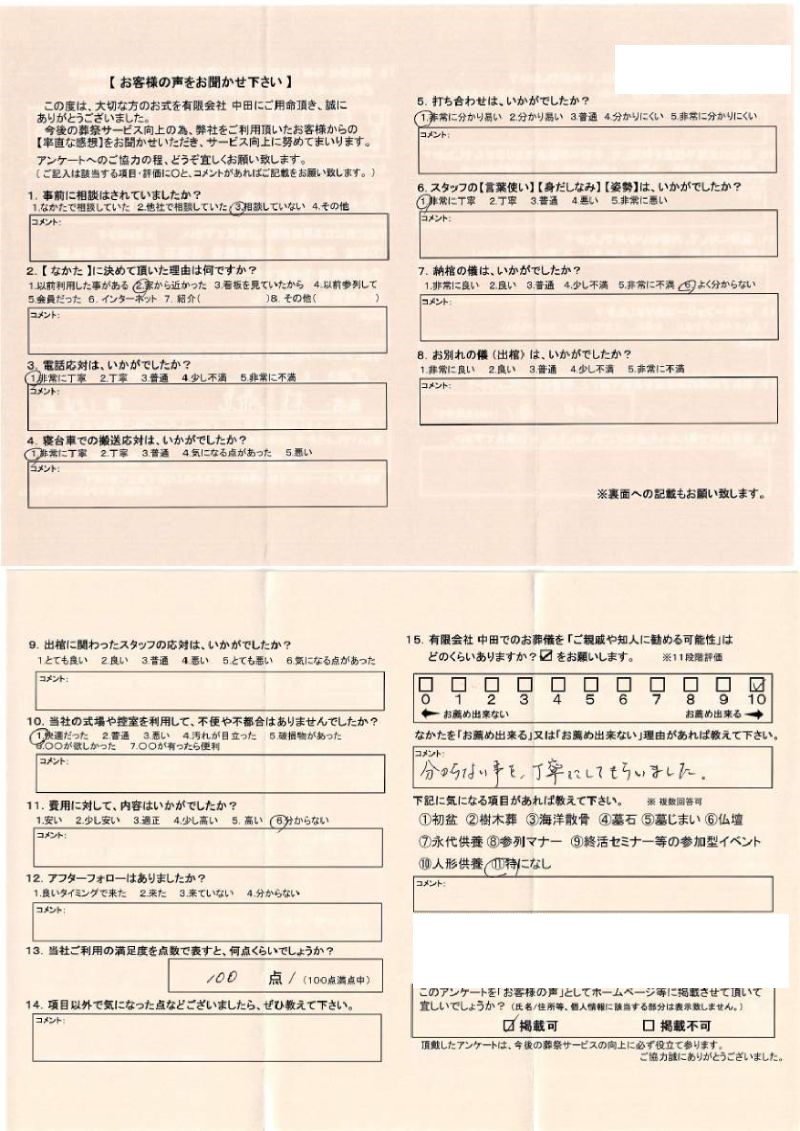 【 お客様の声をお聞かせ下さい 】
この度は、大切な方のお式を有限会社 中田にご用命頂き、誠に
ありがとうございました。
今後の葬祭サービス向上の為、弊社をご利用頂いたお客様からの
【率直な感想】をお聞かせいただき、サービス向上に努めてまいります。
アンケートへのご協力の程、どうぞ宜しくお願い致します。
（ご記入は該当する項目・評価に○と、コメントがあればご記載をお願い致します。）
1. 事前に相談はされていましたか？
1.なかたで相談していた 2.他社で相談していた 3.相談していない 4.その他
コメント：
2.【 なかた 】に決めて頂いた理由は何ですか？
1.以前利用した事がある 2.家から近かった 3.看板を見ていたから 4.以前参列して
5.会員だった 6. インターネット 7. 紹介( )8. その他( )
コメント：
3. 電話応対は、いかがでしたか？
1.非常に丁寧 2.丁寧 3.普通 4.少し不満 5.非常に不満
コメント：
4. 寝台車での搬送応対は、いかがでしたか？
1.非常に丁寧 2.丁寧 3.普通 4.気になる点があった 5.悪い
コメント：
5. 打ち合わせは、いかがでしたか？
1.非常に分かり易い 2.分かり易い 3.普通 4.分かりにくい 5.非常に分かりにくい
コメント：
6. スタッフの【言葉使い】【身だしなみ】【姿勢】は、いかがでしたか？
1.非常に丁寧 2.丁寧 3.普通 4.悪い 5.非常に悪い
コメント：
7. 納棺の儀は、いかがでしたか？
1.非常に良い 2.良い 3.普通 4.少し不満 5.非常に不満 6.よく分からない
コメント：
8. お別れの儀（出棺）は、いかがでしたか？
1.非常に良い 2.良い 3.普通 4.少し不満 5.非常に不満
コメント：
※裏面への記載もお願い致します。
9. 出棺に関わったスタッフの応対は、いかがでしたか？
1.とても良い 2.良い 3.普通 4.悪い 5.とても悪い 6.気になる点があった
コメント：
10. 当社の式場や控室を利用して、不便や不都合はありませんでしたか？
1.快適だった 2.普通 3.悪い 4.汚れが目立った 5.破損物があった
6.○○が欲しかった 7.○○が有ったら便利
コメント：
11. 費用に対して、内容はいかがでしたか？
1.安い 2.少し安い 3.適正 4.少し高い 5. 高い 6.分からない
コメント：
12. アフターフォローはありましたか？
1.良いタイミングで来た 2.来た 3.来ていない 4.分からない
コメント：
13. 当社ご利用の満足度を点数で表すと、何点くらいでしょうか？
100 点 / （100点満点中）
14. 項目以外で気になった点などございましたら、ぜひ教えて下さい。
コメント：
15. 有限会社 中田でのお葬儀を「ご親戚や知人に勧める可能性」は
どのくらいありますか？☑ をお願いします。 ※11段階評価
0 1 2 3 4 5 6 7 8 9 10
お薦め出来ない お薦め出来る
なかたを「お薦め出来る」又は「お薦め出来ない」理由があれば教えて下さい。
コメント：
分からない事を、丁寧にしてもらいました。
下記に気になる項目があれば教えて下さい。 ※ 複数回答可
①初盆 ②樹木葬 ③海洋散骨 ④墓石 ⑤墓じまい ⑥仏壇
⑦永代供養 ⑧参列マナー ⑨終活セミナー等の参加型イベント
⑩人形供養 ⑪特になし
コメント：
このアンケートを「お客様の声」としてホームページ等に掲載させて頂いて
宜しいでしょうか？（氏名/住所等、個人情報に該当する部分は表示致しません。）
☑ 掲載可 ☐ 掲載不可
頂戴したアンケートは、今後の葬祭サービスの向上に必ず役立て参ります。
ご協力誠にありがとうございました。